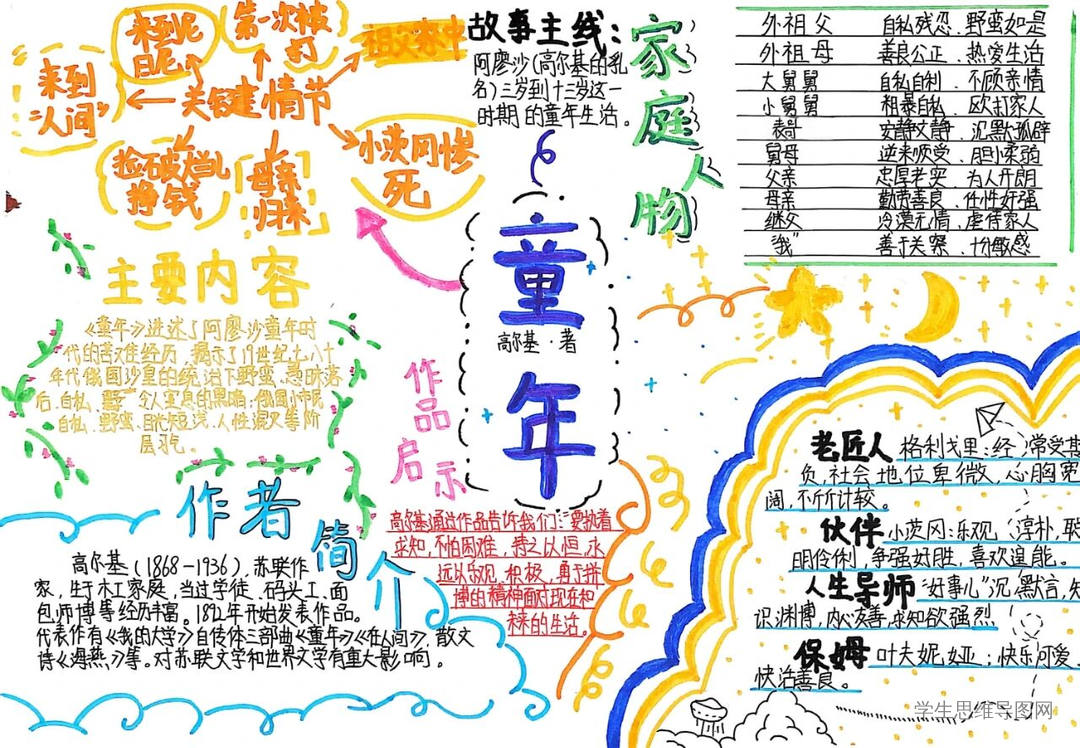 来到尼
日尼
第一次被
打
祖父家中
来到
"人间"
关键情节
捡破烂儿
挣钱
母亲
归来
小茨冈惨
死
故事主线:
阿廖沙(高尔基的乳
名)三岁到十三岁这一
时期的童年生活。
家庭人物
外祖父 自私残忍、野蛮如是
外祖母 善良公正、热爱生活
大舅舅 自私自利、不顾亲情
小舅舅 粗暴自私、欧打家人
表哥 安静文静、沉默孤僻
舅母 逆来顺受、胆小柔弱
父亲 忠厚老实、为人开朗
母亲 勤劳善良、任性好强
继父 冷漠无情、虐待家人
"我" 善于关察、十分敏感
童年
高尔基·著
主要内容
《童年》讲述了阿廖沙童年时
代的苦难经历,揭示了19世纪七八十
年代俄国沙皇的统治下野蛮、愚昧落
后、自私、
自私、野蛮、目光短浅、人性混
层
作品启示
高尔基通过作品告诉我们:要执着
求知,不怕困难,持之以恒,永
远以乐观、积极、勇于拼
博的精神面对现在和
未来的生活。
作者简介
高尔基(1868-1936),苏联作
家,生于木工家庭,当过学徒、码头工、面
包师博等经历丰富。1892年开始发表作品。
代表作有《我的大学》自传体三部曲《童年》《在人间》,散文
诗《海燕》等。对苏联文学和世界文学有重大影响。
老匠人 格利戈里:经常受其
负,社会地位卑微,心胸宽
阔,不斤斤计较。
伙伴 小茨冈:乐观、淳朴,聪
明伶俐,争强好胜,喜欢逞能。
人生导师 "好事儿"沉默言,知
识渊博,内心友善,求知欲强烈
保姆 叶夫妮娅:快乐可爱、
快活善良。
学生思维导图网